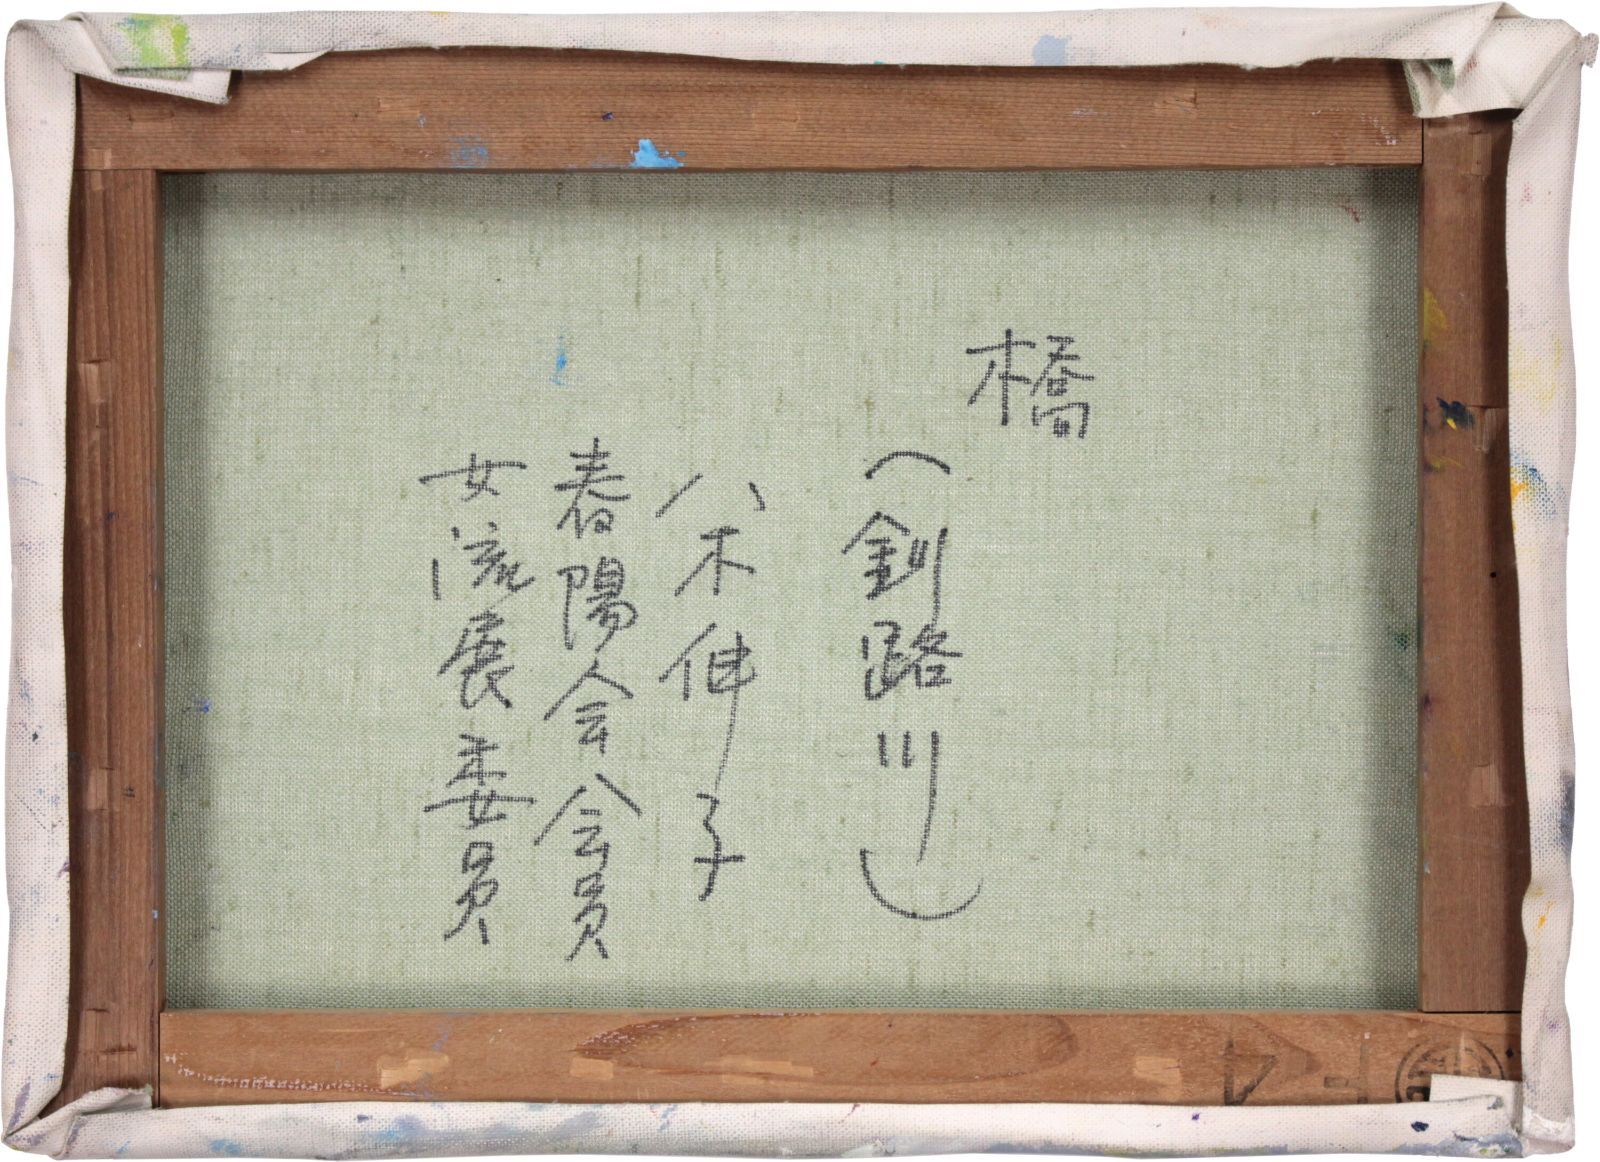 橋
(釧路川)
八木伸子
春陽会会員
女流展委員